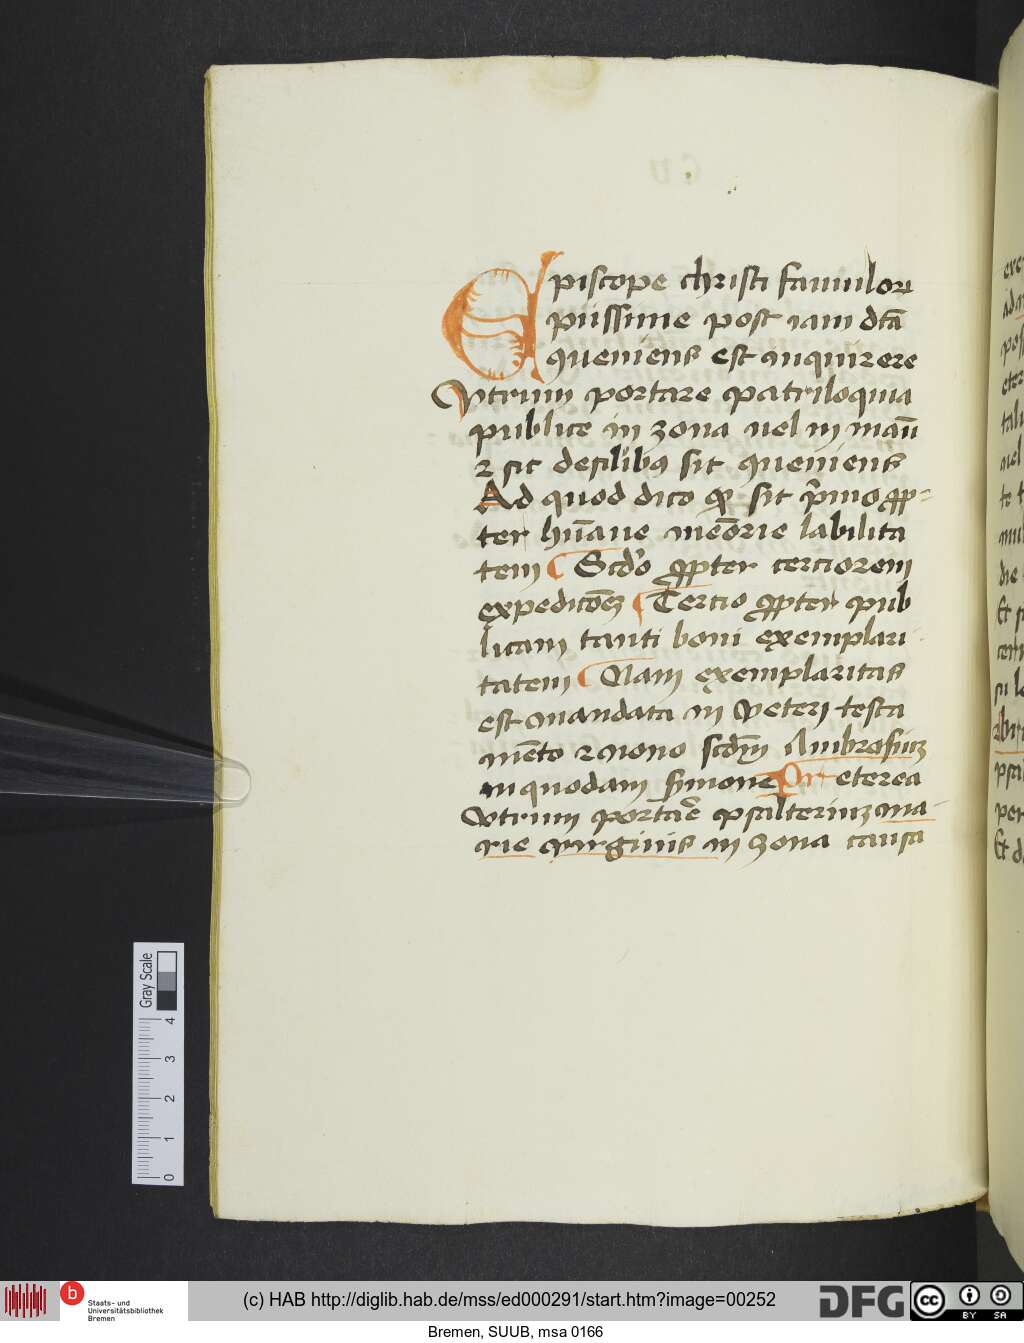 Episcope christi famulorꝝ
piissime post iam dc̄ā
queniens est inquirere
Vtrum portare patriloquia
publice in zona uel in manū
⁊ sit desilibꝯ sit queniens
Ad quod dico qꝫ sit p̄mo ꝓp-
ter hūane meōrie labilita
tem Scd̓o ꝓpter certiorem
expedic̄oꝫ Tercio ꝓpter pub
licam tanti boni exemplari
tatem Nam exemplaritas
est mandata in veteri testa
mēto ⁊ nouo scd̄m Ambrosiuꝫ
in quodam sermone Preterea
Vtrum portar̄e psalteriuꝫ ma-
rie virginis in zona causa
Gray Scale
4
3
2
1
0
b
Staats- und
Universitätsbibliothek
Bremen
(c) HAB http://diglib.hab.de/mss/ed000291/start.htm?image=00252
DFG
cc
BY SA
Bremen, SUUB, msa 0166